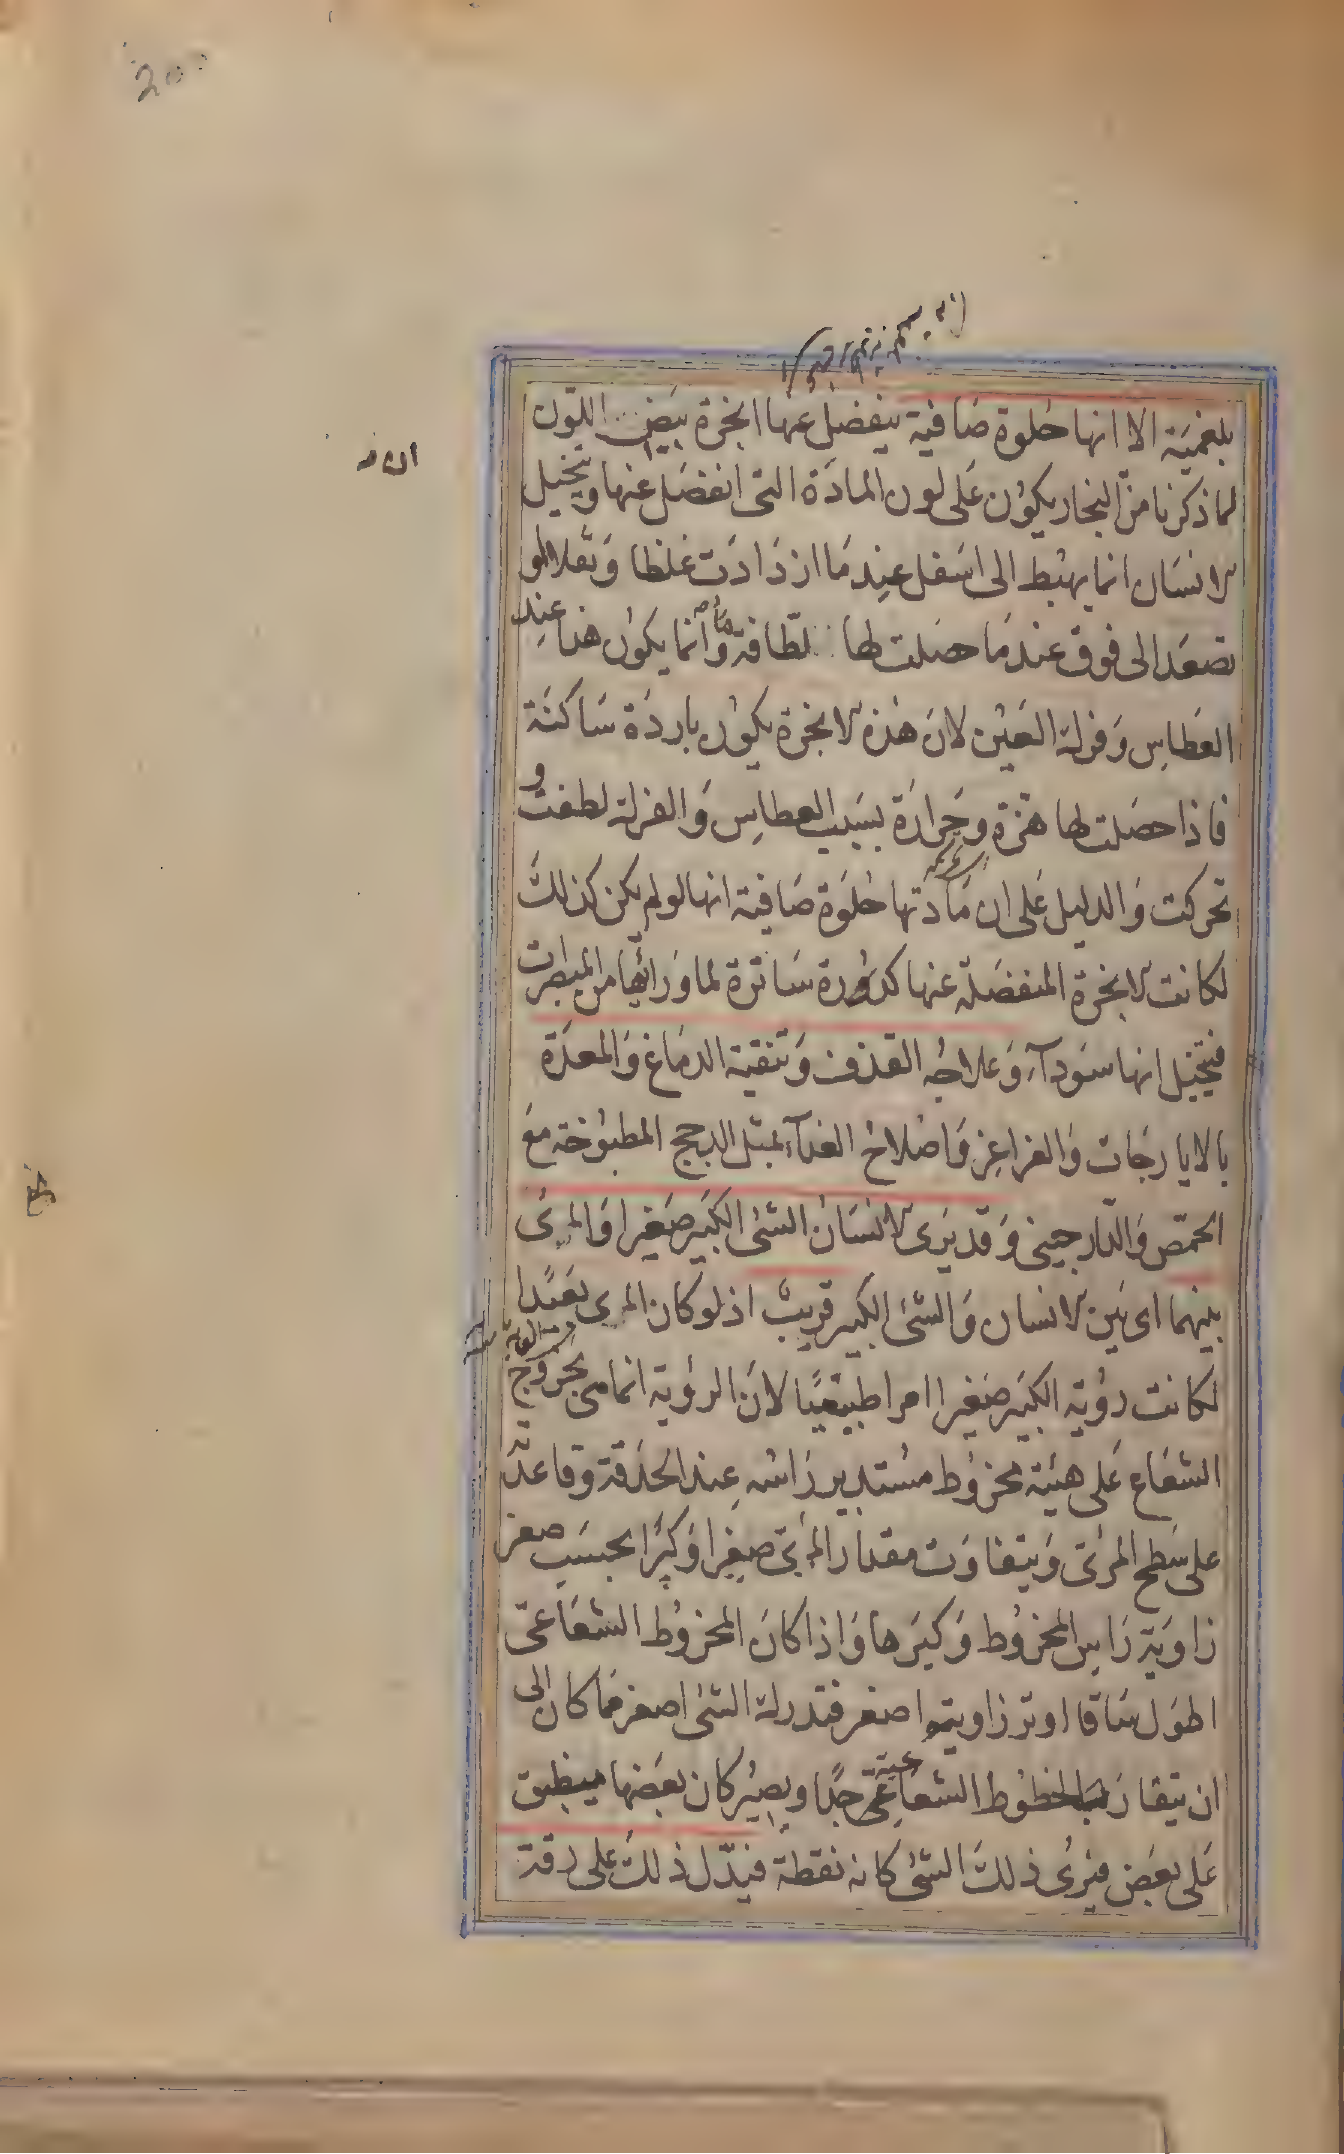 بلغمية الا انها حلوة صافية ينفصل عنها ابخرة بيض اللون
لما ذكرنا من البخار يكون على لون المادة التى انفصل عنها ويتخيل
الانسان انما يهبط الى اسفل عند ما ازدادت غلظا وثقلا او
تصعد الى فوق عند ما حصلت لها لطافة ما وانما يكون هذا عند
العطاس وفرك العين لان هذه الابخرة يكون باردة ساكنة
فاذا حصلت لها هزة وحرارة بسبب العطاس والفرك لطفت و
تحركت والدليل على ان مادتها حلوة صافية انها لو لم يكن كذلك
لكانت الابخرة المنفصلة عنها كدورة ساترة لما ورائها من المبصرات
فيتخيل انها سودآء وعلاجه القذف وتنقية الدماغ والمعدة
بالايارجات والغراغر واصلاح الغذآء بمثل الدجج المطبوخة مع
الحمص والدارچينى وقد يرى الانسان الشئ الكبير صغيرا والمرئى
بينهما اى بين الانسان والشئ الكبير قريب اذ لو كان المرى بعيدا
لكانت رؤية الكبير صغيرا امرا طبيعيا لان الرؤية انما هى بخروج
الشعاع على هيئة مخروط مستدير راسه عند الحدقة وقاعدته
على سطح المرئى ويتفاوت مقدار المرئى صغرا وكبرا بحسب صغر
زاوية راس المخروط وكبرها واذا كان المخروط الشعاعى
اطول ساقا اوتر زاويته اصغر فتدرك الشئ اصغر مما كان الى
ان يتقارب الخطوط الشعاعية جدا ويصير كان بعضها ينطبق
على بعض فيرى ذلك الشئ كانه نقطة فيدل ذلك على رقة